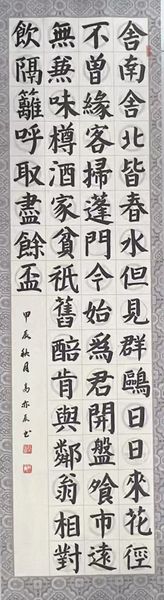 舍南舍北皆春水但見群鷗日日來花徑
不曾緣客掃蓬門今始爲君開盤飱市遠
無兼味樽酒家貧祇舊醅肯與鄰翁相對
飲隔籬呼取盡餘盃
甲辰秋月高亦书